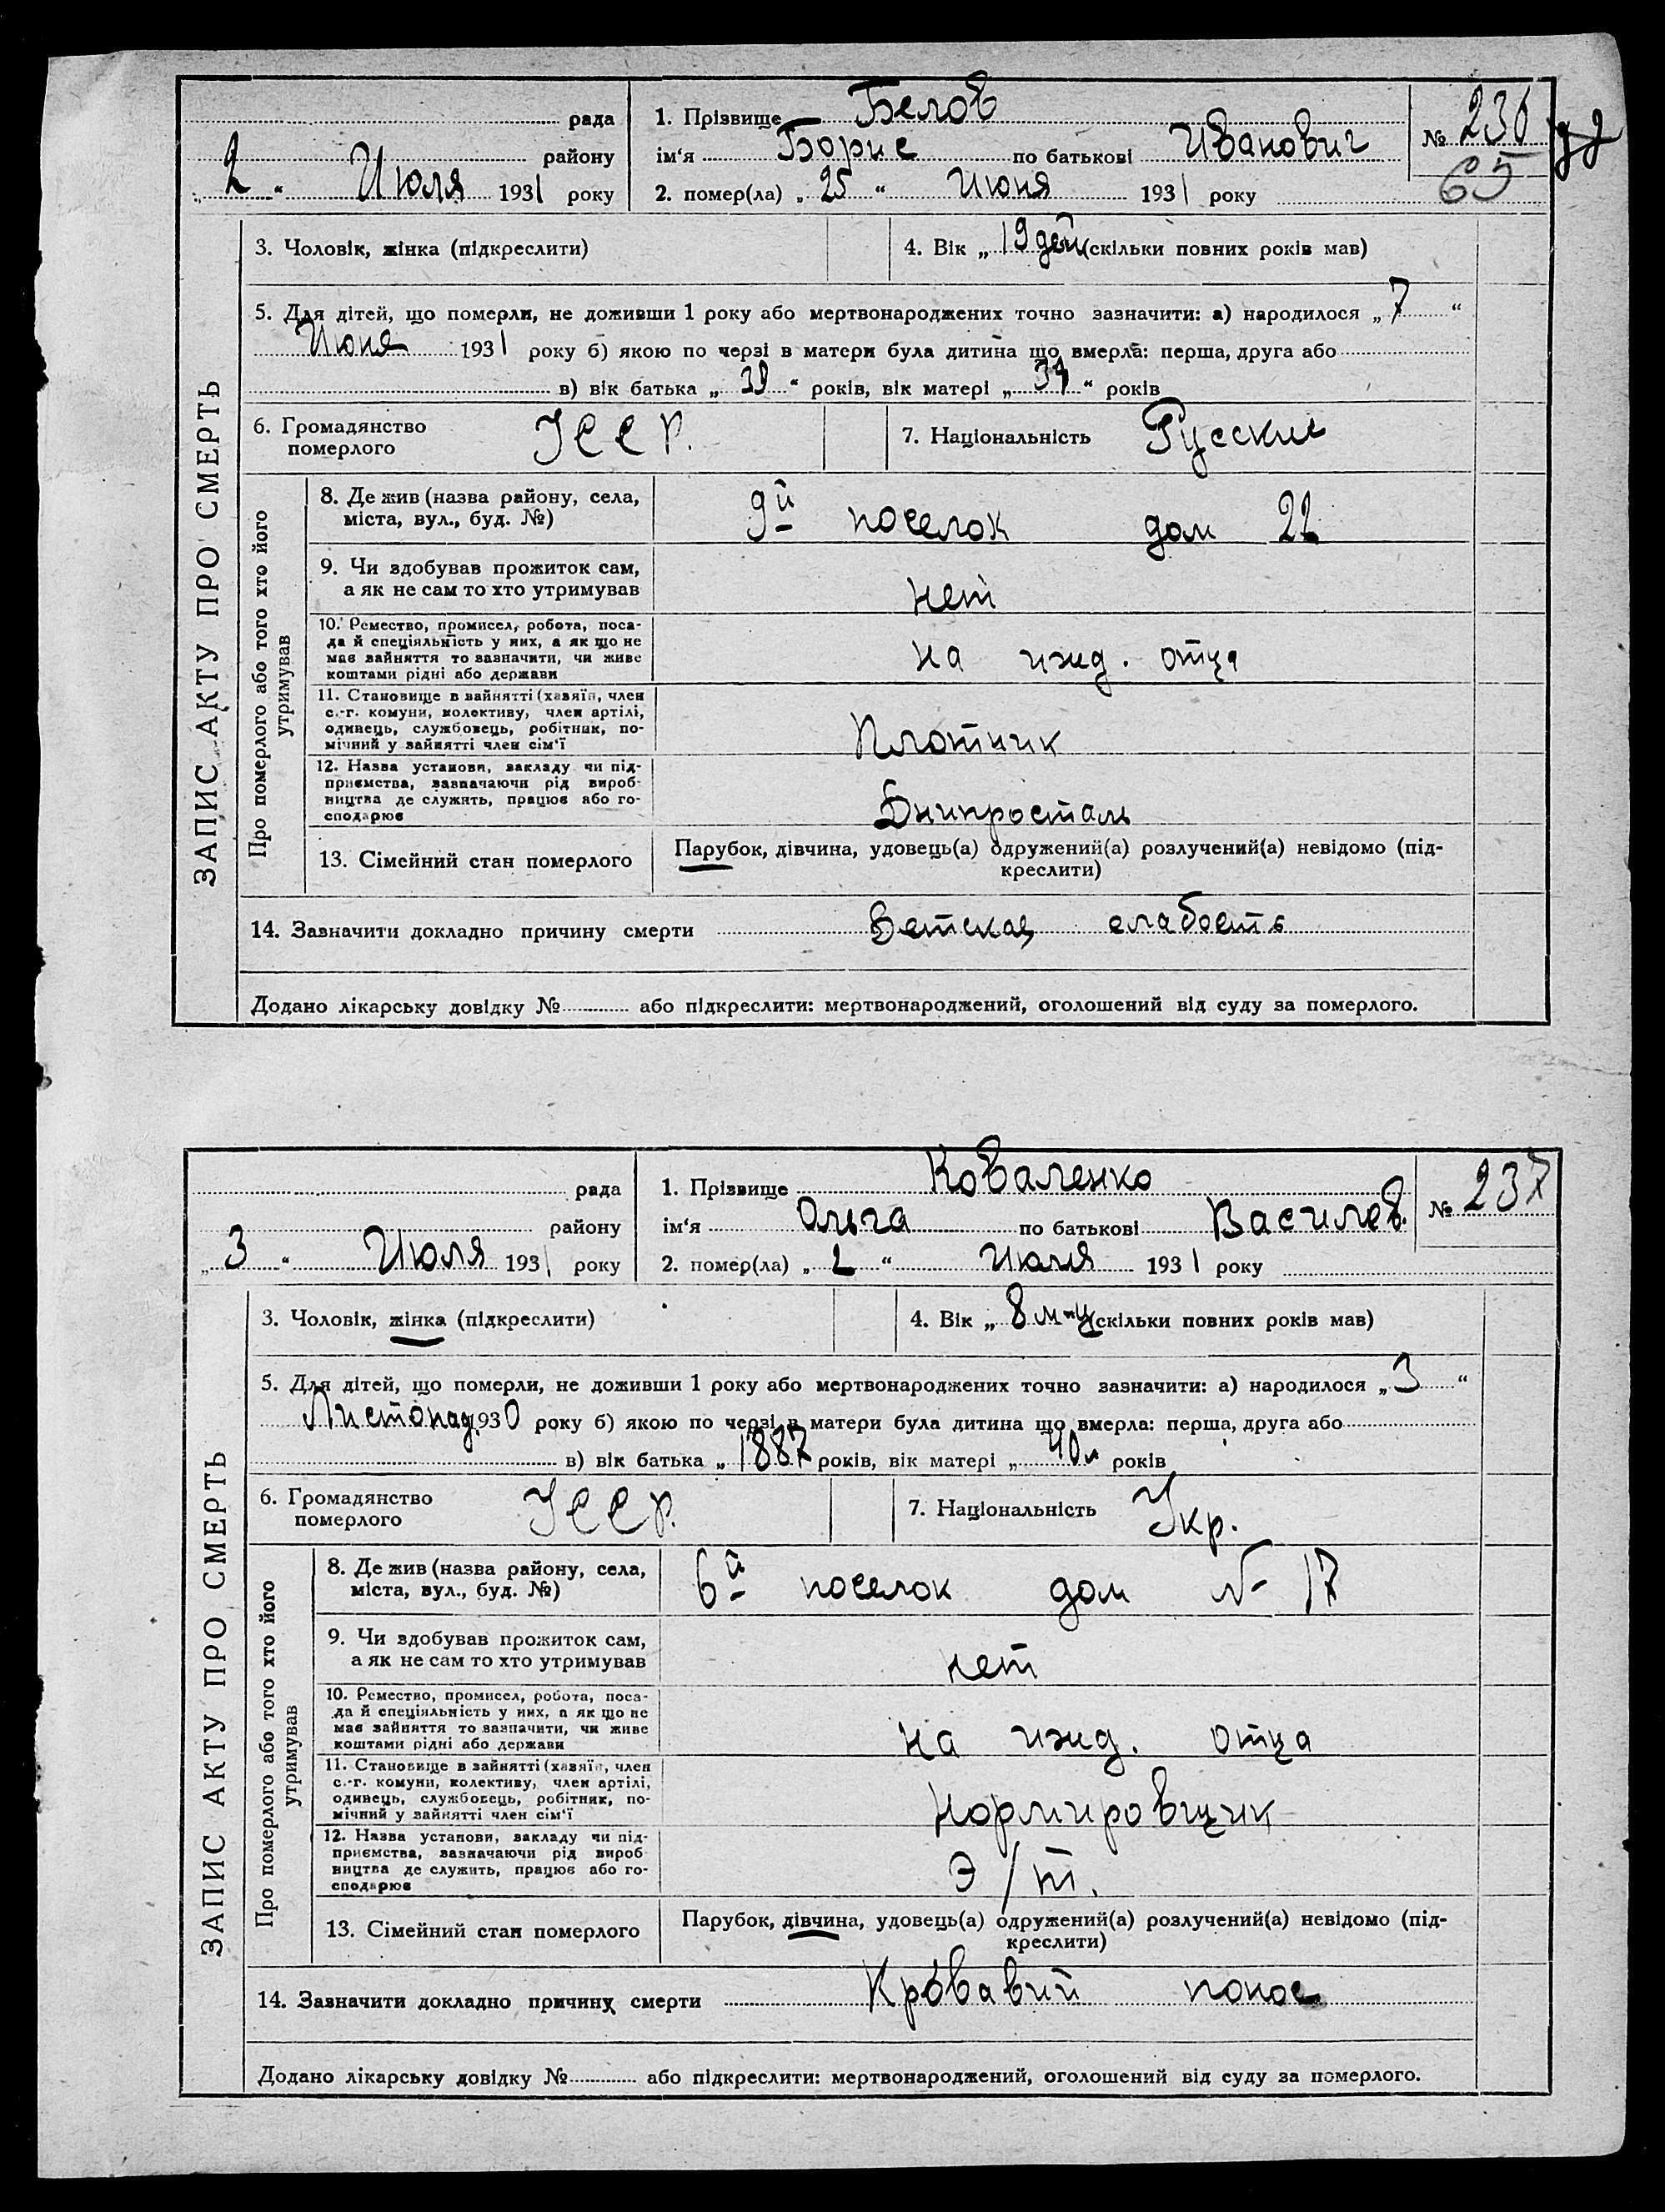 рада
району
„ 2 “ Июля 1931 року
1. Прізвище Белов
ім'я Борис по батькові Иванович
2. помер(ла) „ 25 “ Июня 1931 року
№ 236
65
ЗАПИС АКТУ ПРО СМЕРТЬ
3. Чоловік, жінка (підкреслити)
4. Вік „ 19 дей (скільки повних років мав)
5. Для дітей, що померли, не доживши 1 року або мертвонароджених точно зазначити: а) народилося „ 7 “
Июня 1931 року б) якою по черзі в матери була дитина що вмерла: перша, друга або
в) вік батька „ 39 “ років, вік матері „ 37 “ років
6. Громадянство
померлого
УССР.
7. Національність Русские
Про померлого або того хто його
утримував
8. Де жив (назва району, села,
міста, вул., буд. №)
9й поселок дом 22
9. Чи здобував прожиток сам,
а як не сам то хто утримував
нет
10. Ремество, промисел, робота, поса-
да й спеціяльність у них, а як що не
має зайняття то зазначити, чи живе
коштами рідні або держави
на ижд. отца
11. Становище в зайнятті (хазяїн, член
с.-г. комуни, колективу, член артілі,
одинець, службовець, робітник, по-
мічний у зайнятті член сім'ї
Плотник
12. Назва установи, закладу чи під-
приємства, зазначаючи рід вироб-
ництва де служить, працює або го-
сподарює
Днипросталь
13. Сімейний стан померлого
Парубок, дівчина, удовець(а) одружений(а) розлучений(а) невідомо (під-
креслити)
14. Зазначити докладно причину смерти Детская слабость
Додано лікарську довідку № або підкреслити: мертвонароджений, оголошений від суду за померлого.
рада
району
„ 3 “ Июля 1931 року
1. Прізвище Коваленко
ім'я Ольга по батькові Василев.
2. помер(ла) „ 2 “ Июля 1931 року
№ 237
ЗАПИС АКТУ ПРО СМЕРТЬ
3. Чоловік, жінка (підкреслити)
4. Вік „ 8 м-ц (скільки повних років мав)
5. Для дітей, що померли, не доживши 1 року або мертвонароджених точно зазначити: а) народилося „ 3 “
Листопад 1930 року б) якою по черзі в матери була дитина що вмерла: перша, друга або
в) вік батька „ 1887 років, вік матері „ 40 л років
6. Громадянство
померлого
УССР.
7. Національність Укр.
Про померлого або того хто його
утримував
8. Де жив (назва району, села,
міста, вул., буд. №)
6й поселок дом № 17
9. Чи здобував прожиток сам,
а як не сам то хто утримував
нет
10. Ремество, промисел, робота, поса-
да й спеціяльність у них, а як що не
має зайняття то зазначити, чи живе
коштами рідні або держави
на ижд. отца
11. Становище в зайнятті (хазяїн, член
с.-г. комуни, колективу, член артілі,
одинець, службовець, робітник, по-
мічний у зайнятті член сім'ї
Нормировщик
12. Назва установи, закладу чи під-
приємства, зазначаючи рід вироб-
ництва де служить, працює або го-
сподарює
Э/т.
13. Сімейний стан померлого
Парубок, дівчина, удовець(а) одружений(а) розлучений(а) невідомо (під-
креслити)
14. Зазначити докладно причину смерти Кровавий понос
Додано лікарську довідку № або підкреслити: мертвонароджений, оголошений від суду за померлого.